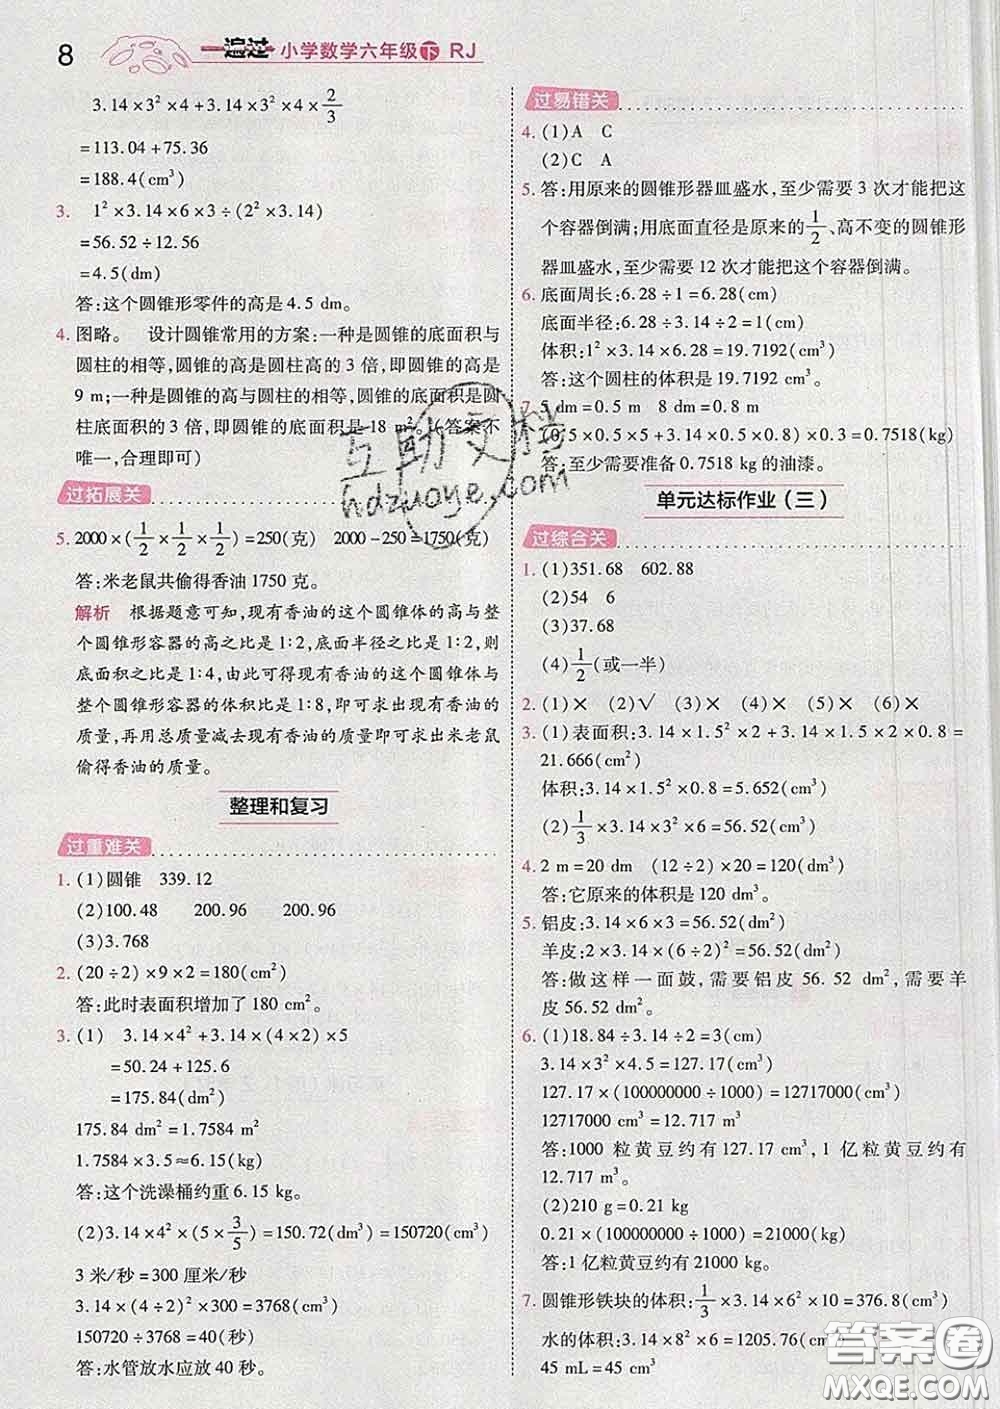 8 一遍过 小学数学六年级下 RJ
3.14×3²×4+3.14×3²×4×2/3
=113.04+75.36
=188.4(cm³)
3. 1²×3.14×6×3÷(2²×3.14)
=56.52÷12.56
=4.5(dm)
答:这个圆锥形零件的高是4.5 dm。
4. 图略。 设计圆锥常用的方案:一种是圆锥的底面积与
圆柱的相等,圆锥的高是圆柱高的3倍,即圆锥的高是
9 m;一种是圆锥的高与圆柱的相等,圆锥的底面积是圆
柱底面积的3倍,即圆锥的底面积是18 m²。(答案不
唯一,合理即可)
过拓展关
5. 2000×(1/2×1/2×1/2)=250(克) 2000-250=1750(克)
答:米老鼠共偷得香油1750克。
解析 根据题意可知,现有香油的这个圆锥体的高与整
个圆锥形容器的高之比是1:2,底面半径之比是1:2,则
底面积之比是1:4,由此可得现有香油的这个圆锥体与
整个圆锥形容器的体积比是1:8,即可求出现有香油的
质量,再用总质量减去现有香油的质量即可求出米老鼠
偷得香油的质量。
整理和复习
过重难关
1. (1)圆锥 339.12
(2)100.48 200.96 200.96
(3)3.768
2. (20÷2)×9×2=180(cm²)
答:此时表面积增加了180 cm²。
3. (1) 3.14×4²+3.14×(4×2)×5
=50.24+125.6
=175.84(dm²)
175.84 dm²=1.7584 m²
1.7584×3.5≈6.15(kg)
答:这个洗澡桶约重6.15 kg。
(2)3.14×4²×(5×3/5)=150.72(dm³)=150720(cm³)
3米/秒=300厘米/秒
3.14×(4÷2)²×300=3768(cm³)
150720÷3768=40(秒)
答:水管放水应放40秒。
过易错关
4. (1)A C
(2)C A
5. 答:用原来的圆锥形器皿盛水,至少需要3次才能把这
个容器倒满;用底面直径是原来的1/2、高不变的圆锥形
器皿盛水,至少需要12次才能把这个容器倒满。
6. 底面周长:6.28÷1=6.28(cm)
底面半径:6.28÷3.14÷2=1(cm)
体积:1²×3.14×6.28=19.7192(cm³)
答:这个圆柱的体积是19.7192 cm³。
7. 5 dm=0.5 m 8 dm=0.8 m
(0.5×0.5×5+3.14×0.5×0.8)×0.3=0.7518(kg)
答:至少需要准备0.7518 kg的油漆。
单元达标作业(三)
过综合关
1. (1)351.68 602.88
(2)54 6
(3)37.68
(4)1/2(或一半)
2. (1)× (2)√ (3)× (4)× (5)× (6)×
3. (1)表面积:3.14×1.5²×2+3.14×1.5×2×0.8=
21.666(cm²)
体积:3.14×1.5²×0.8=5.652(cm³)
(2)1/3×3.14×3²×6=56.52(cm³)
4. 2 m=20 dm (12÷2)×20=120(dm³)
答:它原来的体积是120 dm³。
5. 铝皮:3.14×6×3=56.52(dm²)
羊皮:2×3.14×(6÷2)²=56.52(dm²)
答:做这样一面鼓,需要铝皮56.52 dm²,需要羊
皮56.52 dm²。
6. (1)18.84÷3.14÷2=3(cm)
3.14×3²×4.5=127.17(cm³)
127.17×(100000000÷1000)=12717000(cm³)
12717000 cm³=12.717 m³
答:1000粒黄豆约有127.17 cm³,1亿粒黄豆约有
12.717 m³。
(2)210 g=0.21 kg
0.21×(100000000÷1000)=21000(kg)
答:1亿粒黄豆约有21000 kg。
7. 圆锥形铁块的体积:1/3×3.14×6²×10=376.8(cm³)
水的体积:3.14×8²×6=1205.76(cm³)
45 mL=45 cm³
互助文档
hdzuoye.com
答案圈
MXQE.COM